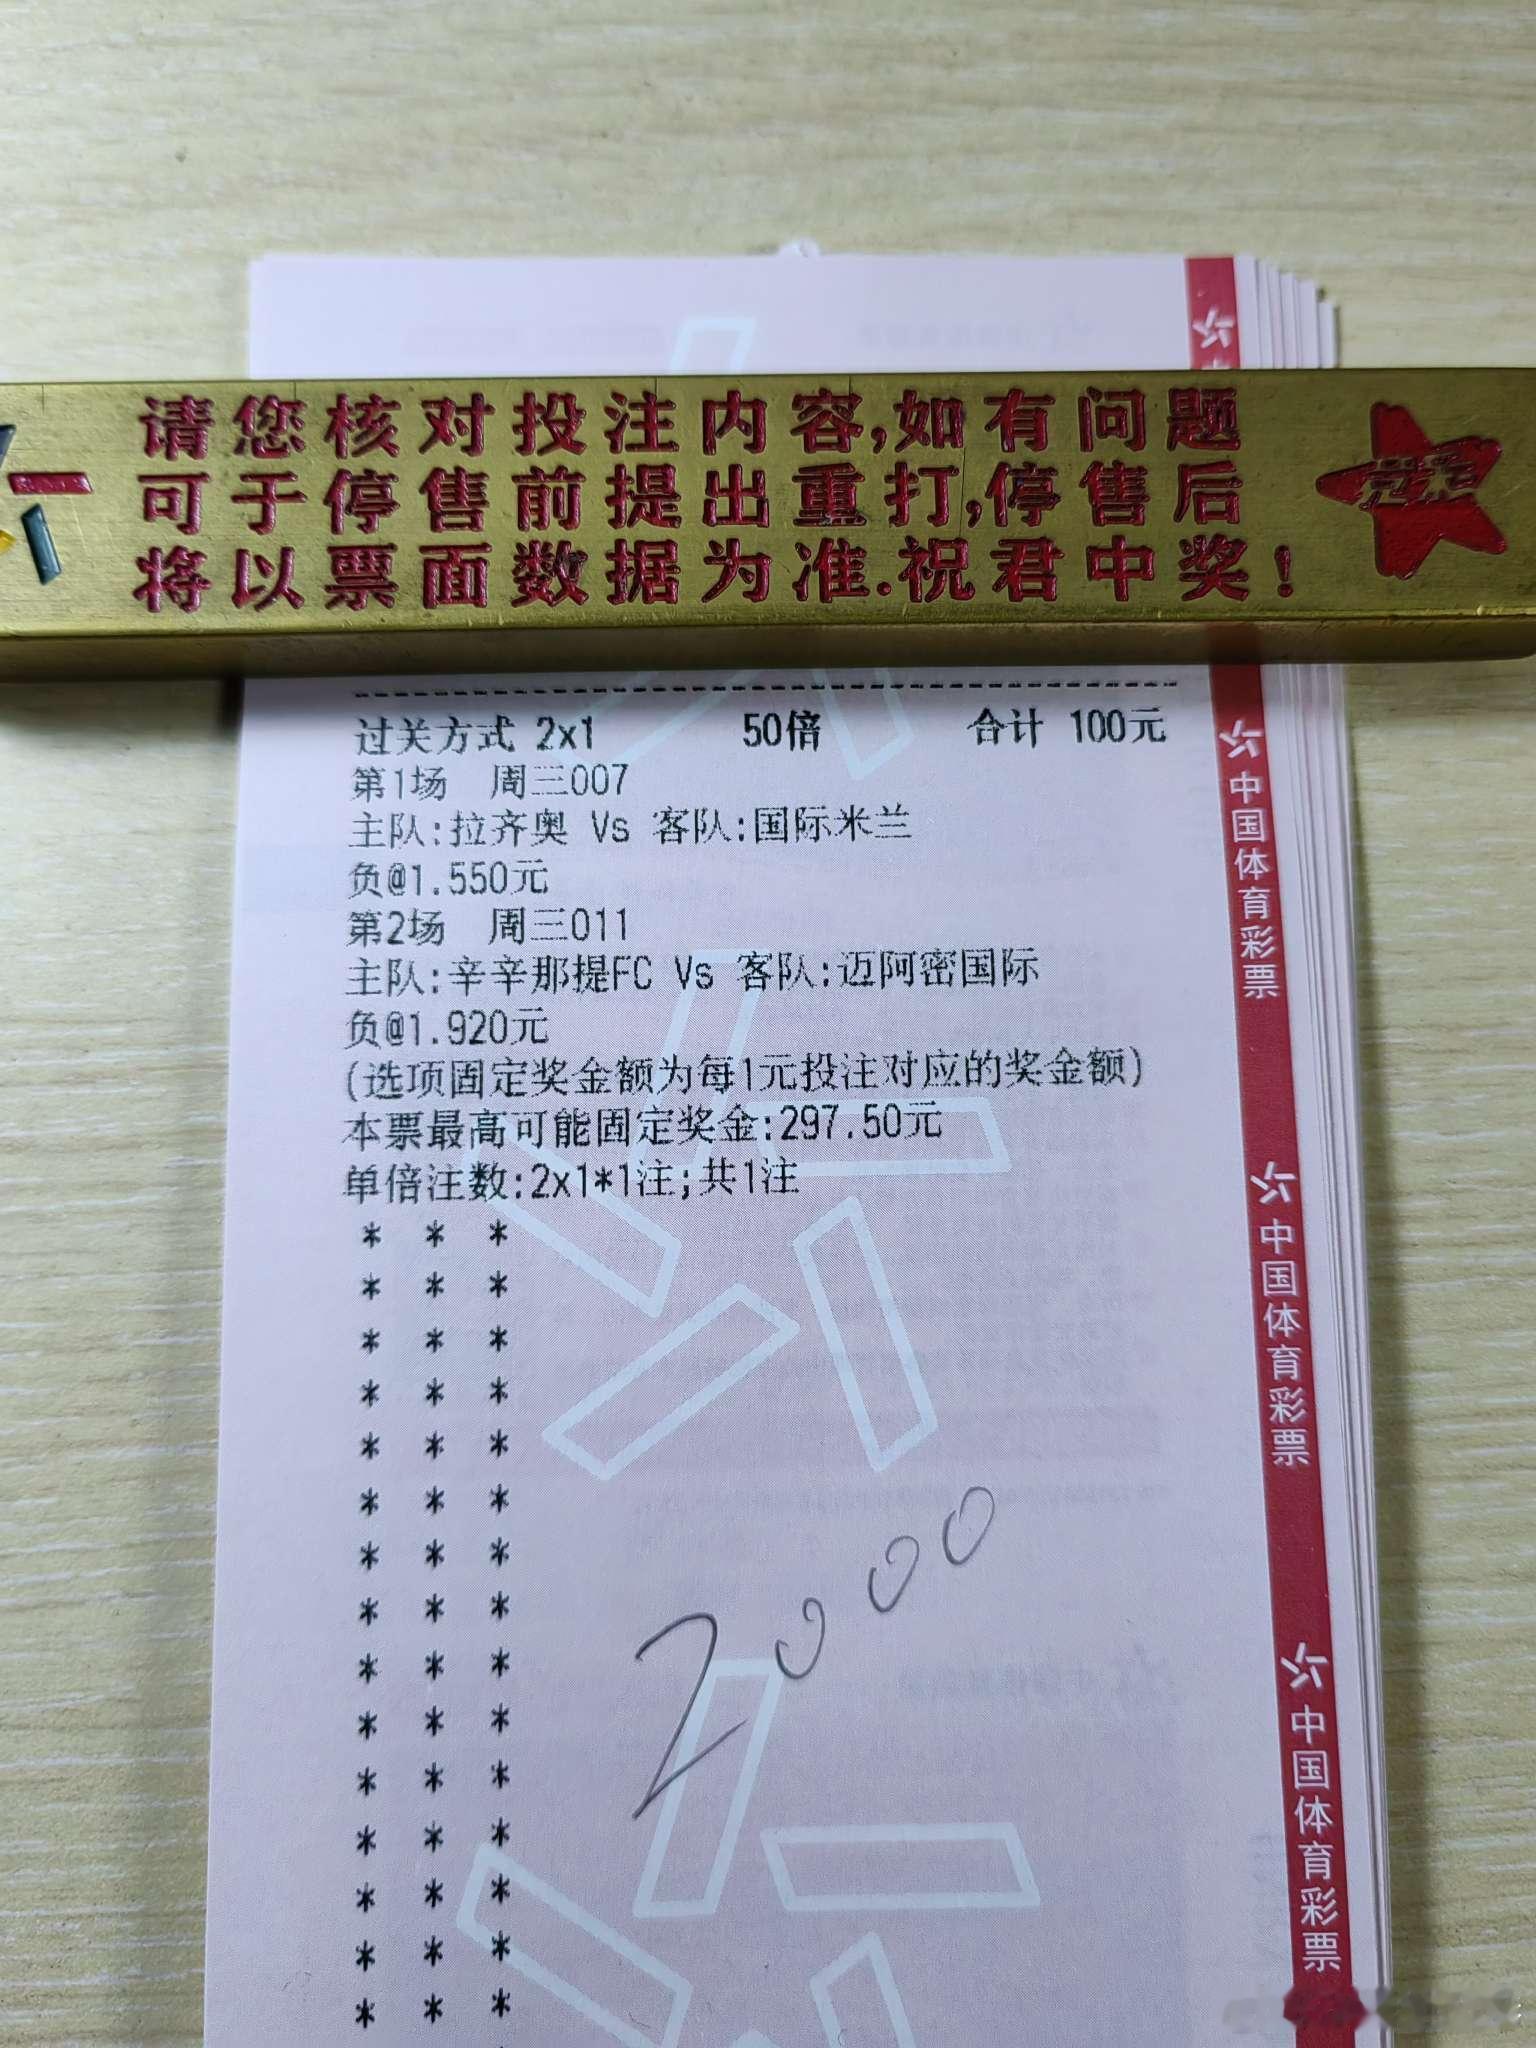 请您核对投注内容,如有问题
可于停售前提出重打,停售后
将以票面数据为准.祝君中奖!
过关方式 2x1 50倍 合计 100元
第1场 周三007
主队:拉齐奥 Vs 客队:国际米兰
负@1.550元
第2场 周三011
主队:辛辛那提FC Vs 客队:迈阿密国际
负@1.920元
(选项固定奖金额为每1元投注对应的奖金额)
本票最高可能固定奖金:297.50元
单倍注数:2x1*1注;共1注
* * *
* * *
* * *
* * *
* * *
* * *
* * *
* * *
* * *
* * *
* * *
* * *
* * *
* * *
* * *
2000
中国体育彩票
中国体育彩票
中国体育彩票